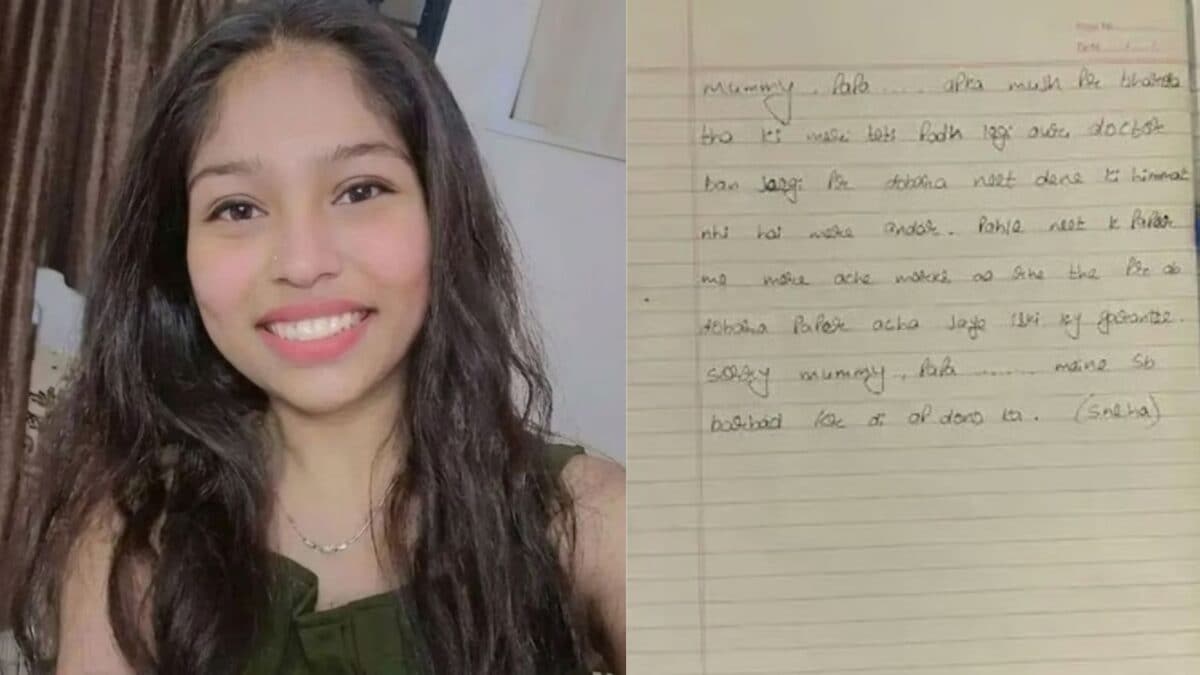 Page No.
Date
mummy, Papa .... apka mujh Per bharosa
tha ki meri beti Padh legi aur doctor
ban Jaegi Per dobara neet dene ki himmat
nhi hai mere andar. Pahle neet k Paper
me mere ache marks aa rhe the Per ab
dobara Paper acha Jaye iski ky garantee.
sorry mummy, Papa ...... maine sb
barbad kr di ap dono ka. (Sneha)